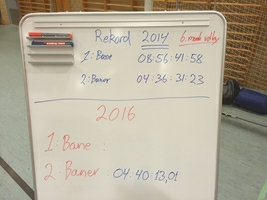 Rekord 2014 6 mnd volley
1: Bane 08:56:41:58
2: Baner 04:36:31:23
2016
1: Bane :
2: Baner : 04:40:13,01